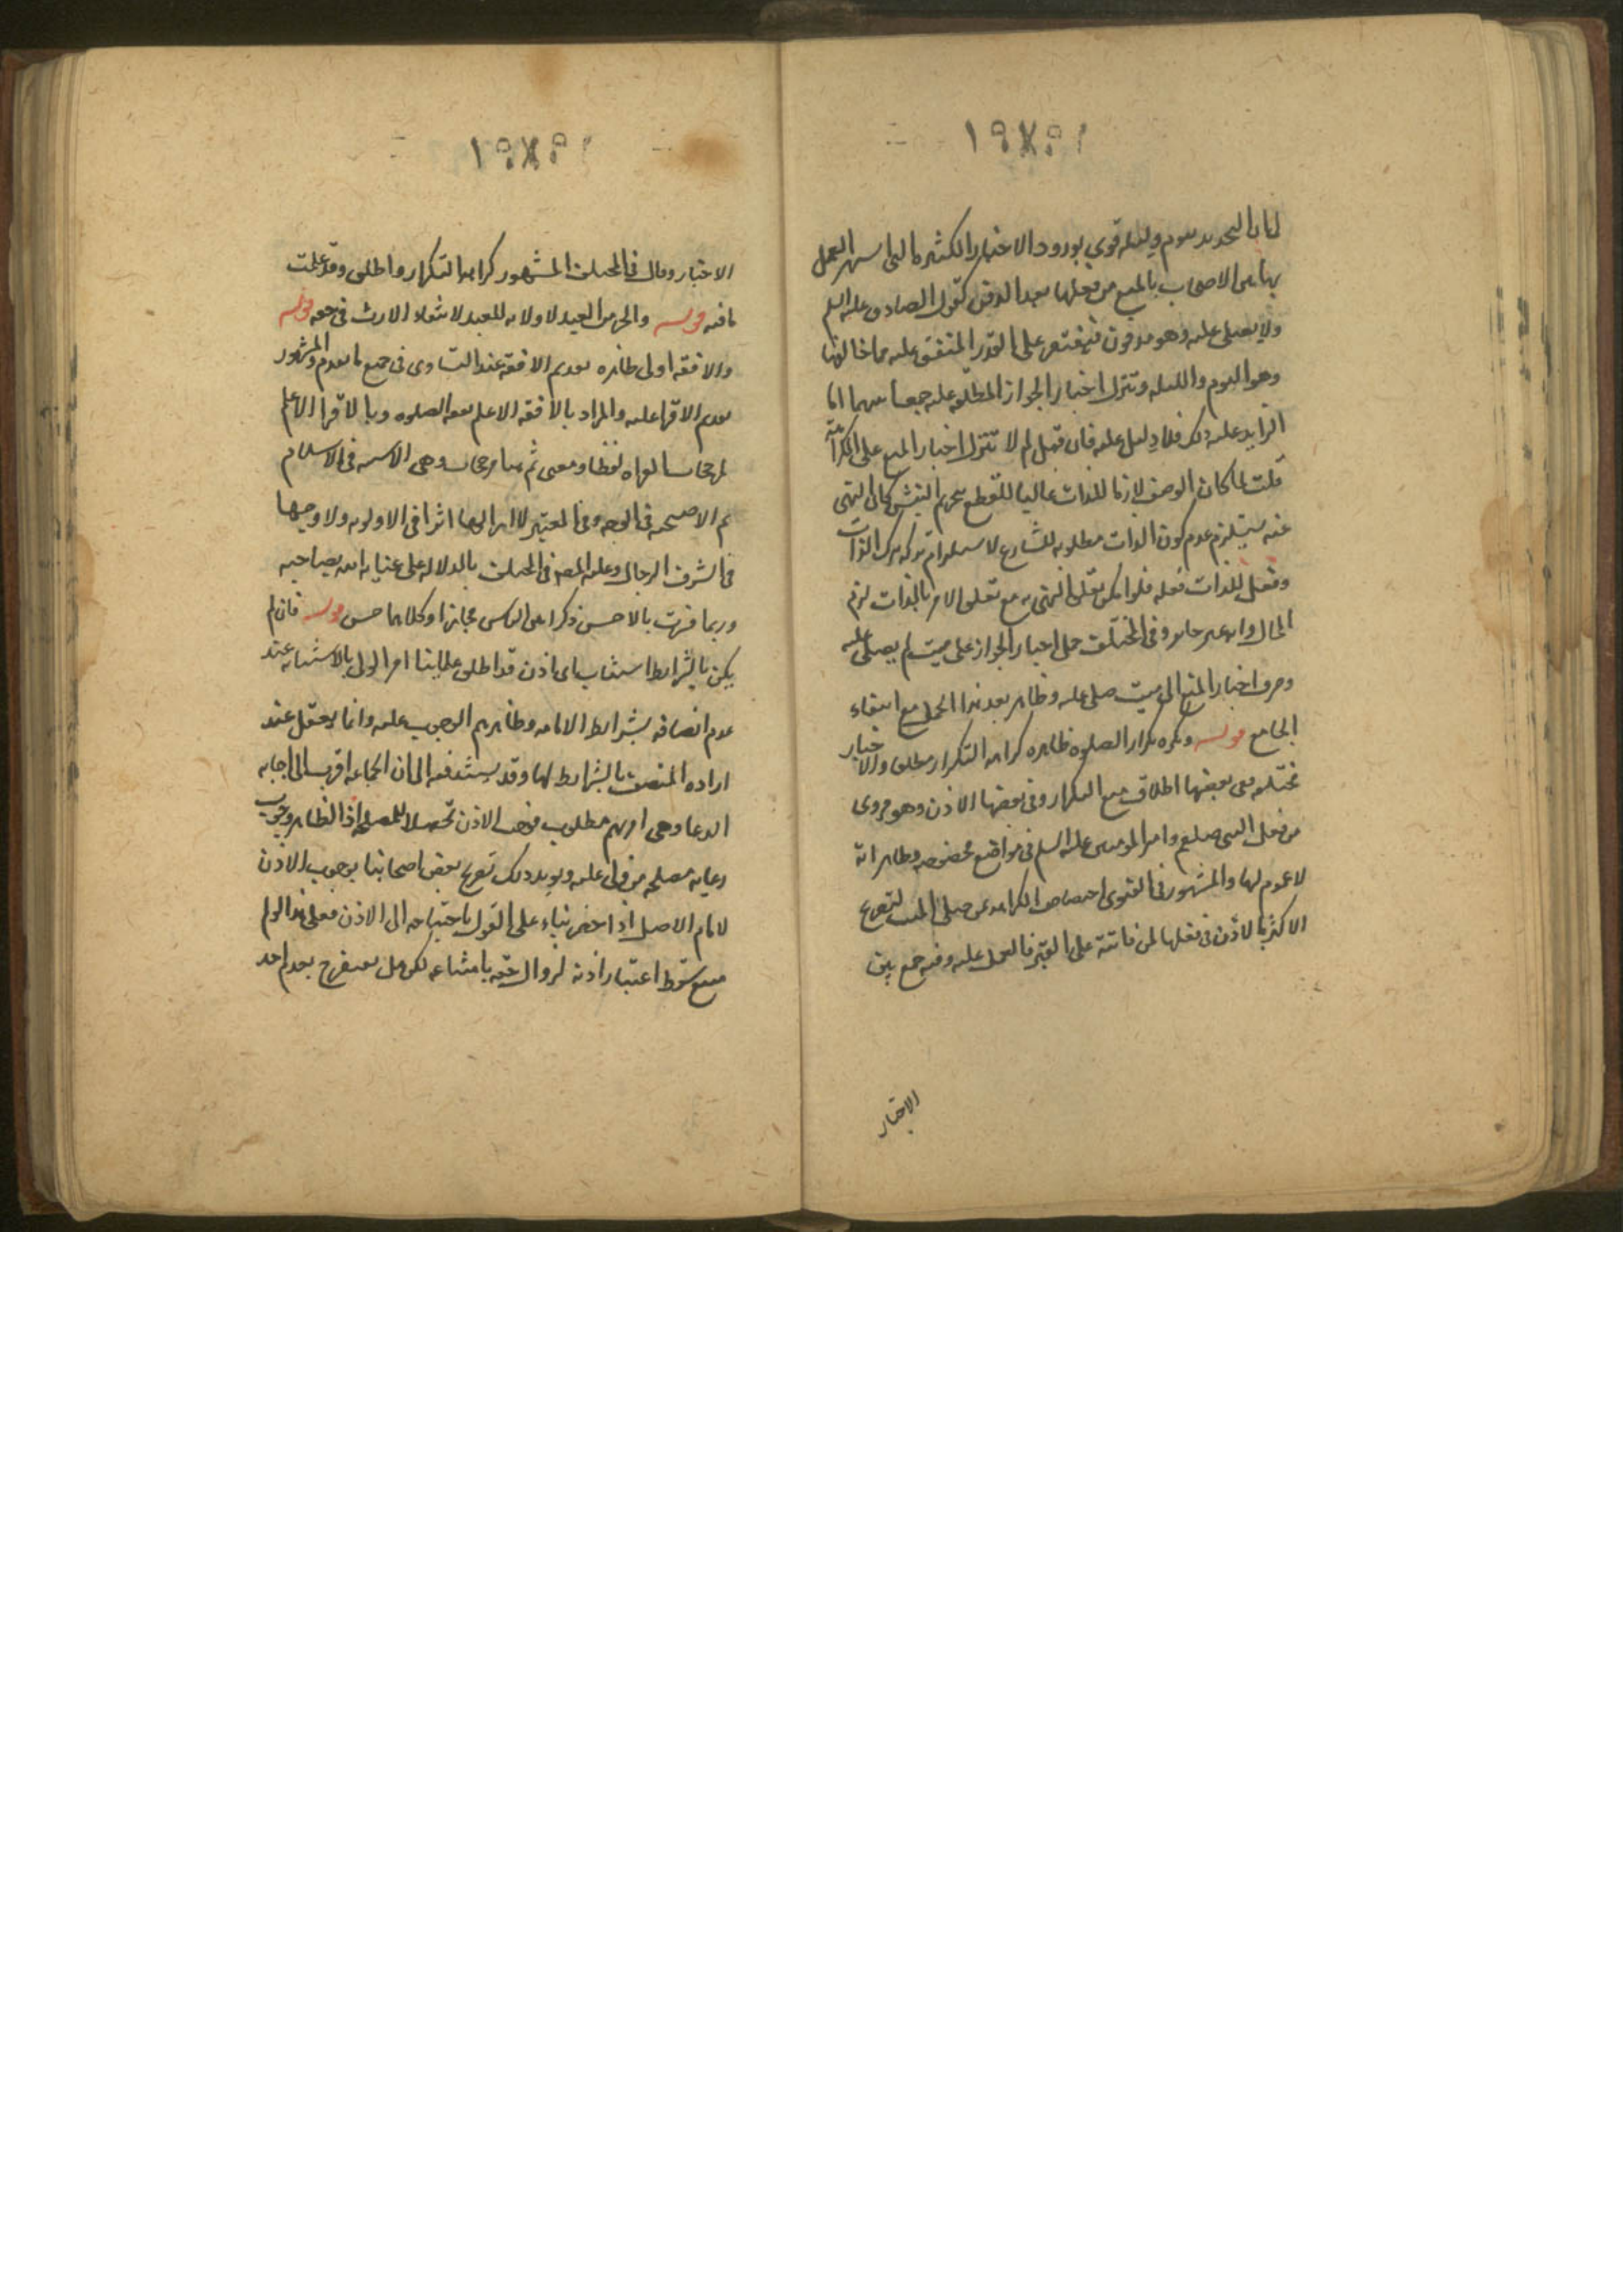 لنا ان التحديد بيوم وليله قوي بورود الاخبار الكثيره التي اشتهر العمل
بها بين الاصحاب بالمنع من فعلها بعد الدفن كقول الصادق عليه السلم
ولا يصلى عليه وهو مدفون فيقتصر على القدر المتفق عليه مما خالفها
وهو اليوم والليله وتنزل اخبار الجواز المطلقه عليه جمعا بينهما اما
الزايد على ذلك فلا دليل عليه فان قيل لم لا تنزل اخبار المنع على الكراهة
قلت لما كان الوصف لازما للذات غالبا للقطع بتحريم النبش كان النهى
عنه يستلزم عدم كون الذات مطلوبه للشارع لاستلزام تركه ترك الذات
وفعل الذات فعله فلو امكن تعلق النهى به مع تعلق الامر بالذات لزم
المحال وانه غير جايز وفي المختلف حمل اخبار الجواز على ميت لم يصلى عليه
وصرف اخبار المنع الى ميت صلى عليه وظاهر بعد هذا الحمل مع انتفاء
الجامع قوله وتكره تكرار الصلوه ظاهره كراهه التكرار مطلقا والاخبار
مختلفه ففي بعضها اطلاق منع التكرار وفي بعضها الاذن وهو مروى
من فعل النبي صلعم وامير المومنين عليه السلم في مواضع مخصوصه وظاهر انه
لا عموم لها والمشهور في الفتوى اختصاص الكراهه بمن صلى على الميت لتصريح
الاكثر بالاذن في فعلها لمن فاتته على القبر فالعمل عليه وفيه جمع بين
الاخبار
الاخبار وقال في المختلف المشهور كراهه التكرار واطلق وقد علمت
ما فيه قوله والحر من العبد لا ولايه للعبد لانتفاء الارث في حقه قوله
والافقه اولى ظاهره تقديم الافقه عند التساوى في جميع ما تقدم والمشهور
تقديم الاقرا عليه والمراد بالافقه الاعلم بفقه الصلوه وبالاقرا الاعلم
بمرجحات القراه لفظا ومعنى ثم هنا مرجحات وهي الاسن في الاسلام
ثم الاصبح في الوجه وفي المعتبر لا ارى لهما اثرا في الاولويه ولا وجها
في الشرف الرجال وعلله المصنف في المختلف بالدلاله على عنايه الله بصاحبه
وربما فسرت بالاحسن ذكرا بين الناس مجازا وكلاهما حسن قوله فان لم
يكن بالشرايط استناب اى اذن قد اطلق علماينا امر الولى بالاستنابه عند
عدم اتصافه بشرايط الامامه وظاهرهم الوجوب عليه وانما يعقل عند
اراده المتصف بالشرايط لها وقد يستند فيه الى ان الجماعه اقرب الى اجابه
الدعا وهي امر مهم مطلوب فوجب الاذن تحصيلا للمصلحه اذ الظاهر وجوب
رعايه مصلحه من ولى عليه ويويد ذلك تصريح بعض اصحابنا بوجوب الاذن
لامام الاصل اذا حضر بناء على القول باحتياجه الى الاذن فعلى هذا لو لم
سقط اعتبار اذنه لزوال حقه بامتناعه لكن هل